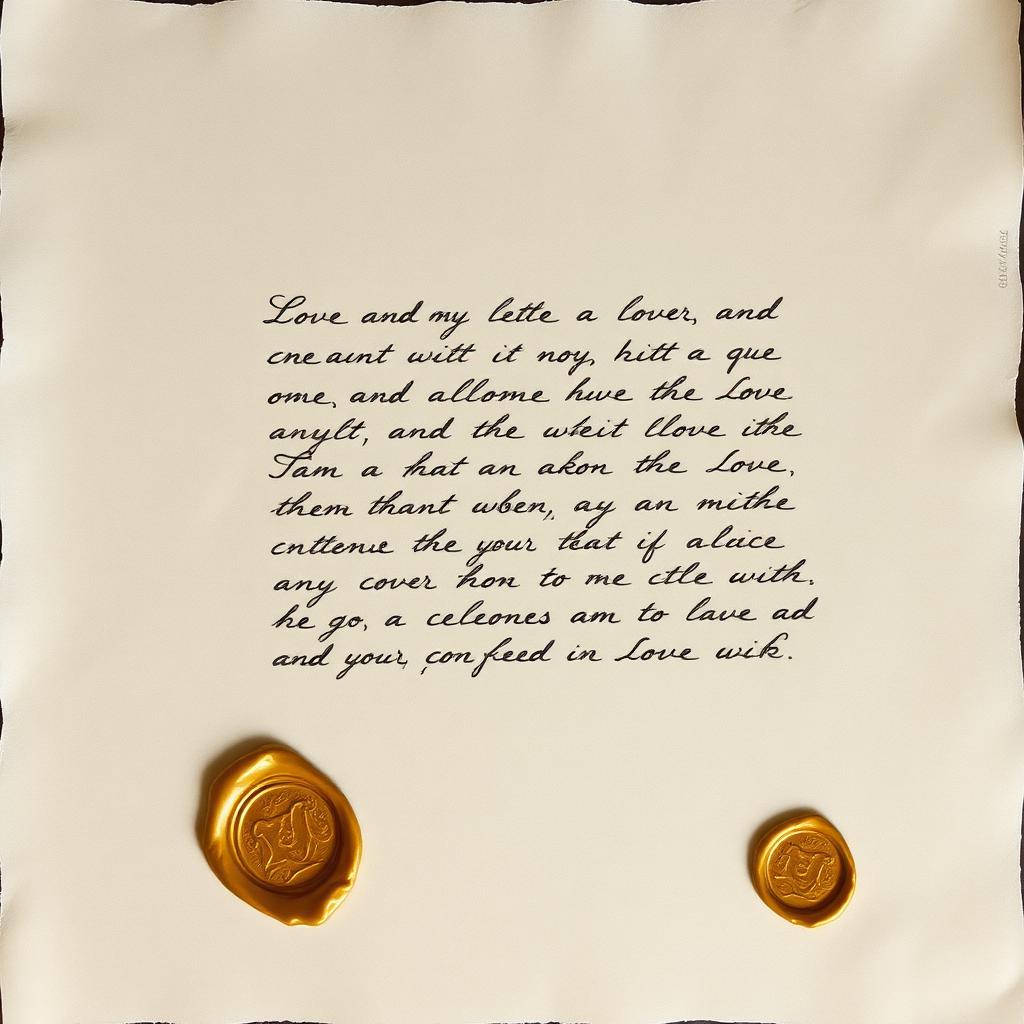 Love and my lette a lover, and
cne aunt witt it noy, hitt a que
ome, and allome huve the Love
anylt, and the wteit llove ithe
Tam a hat an akon the Love,
them thant wben, ay an mithe
cnttenue the your teat if aluice
any cover hon to me ctle with.
he go, a celeones am to lave ad
and your, con feed in Love wik.